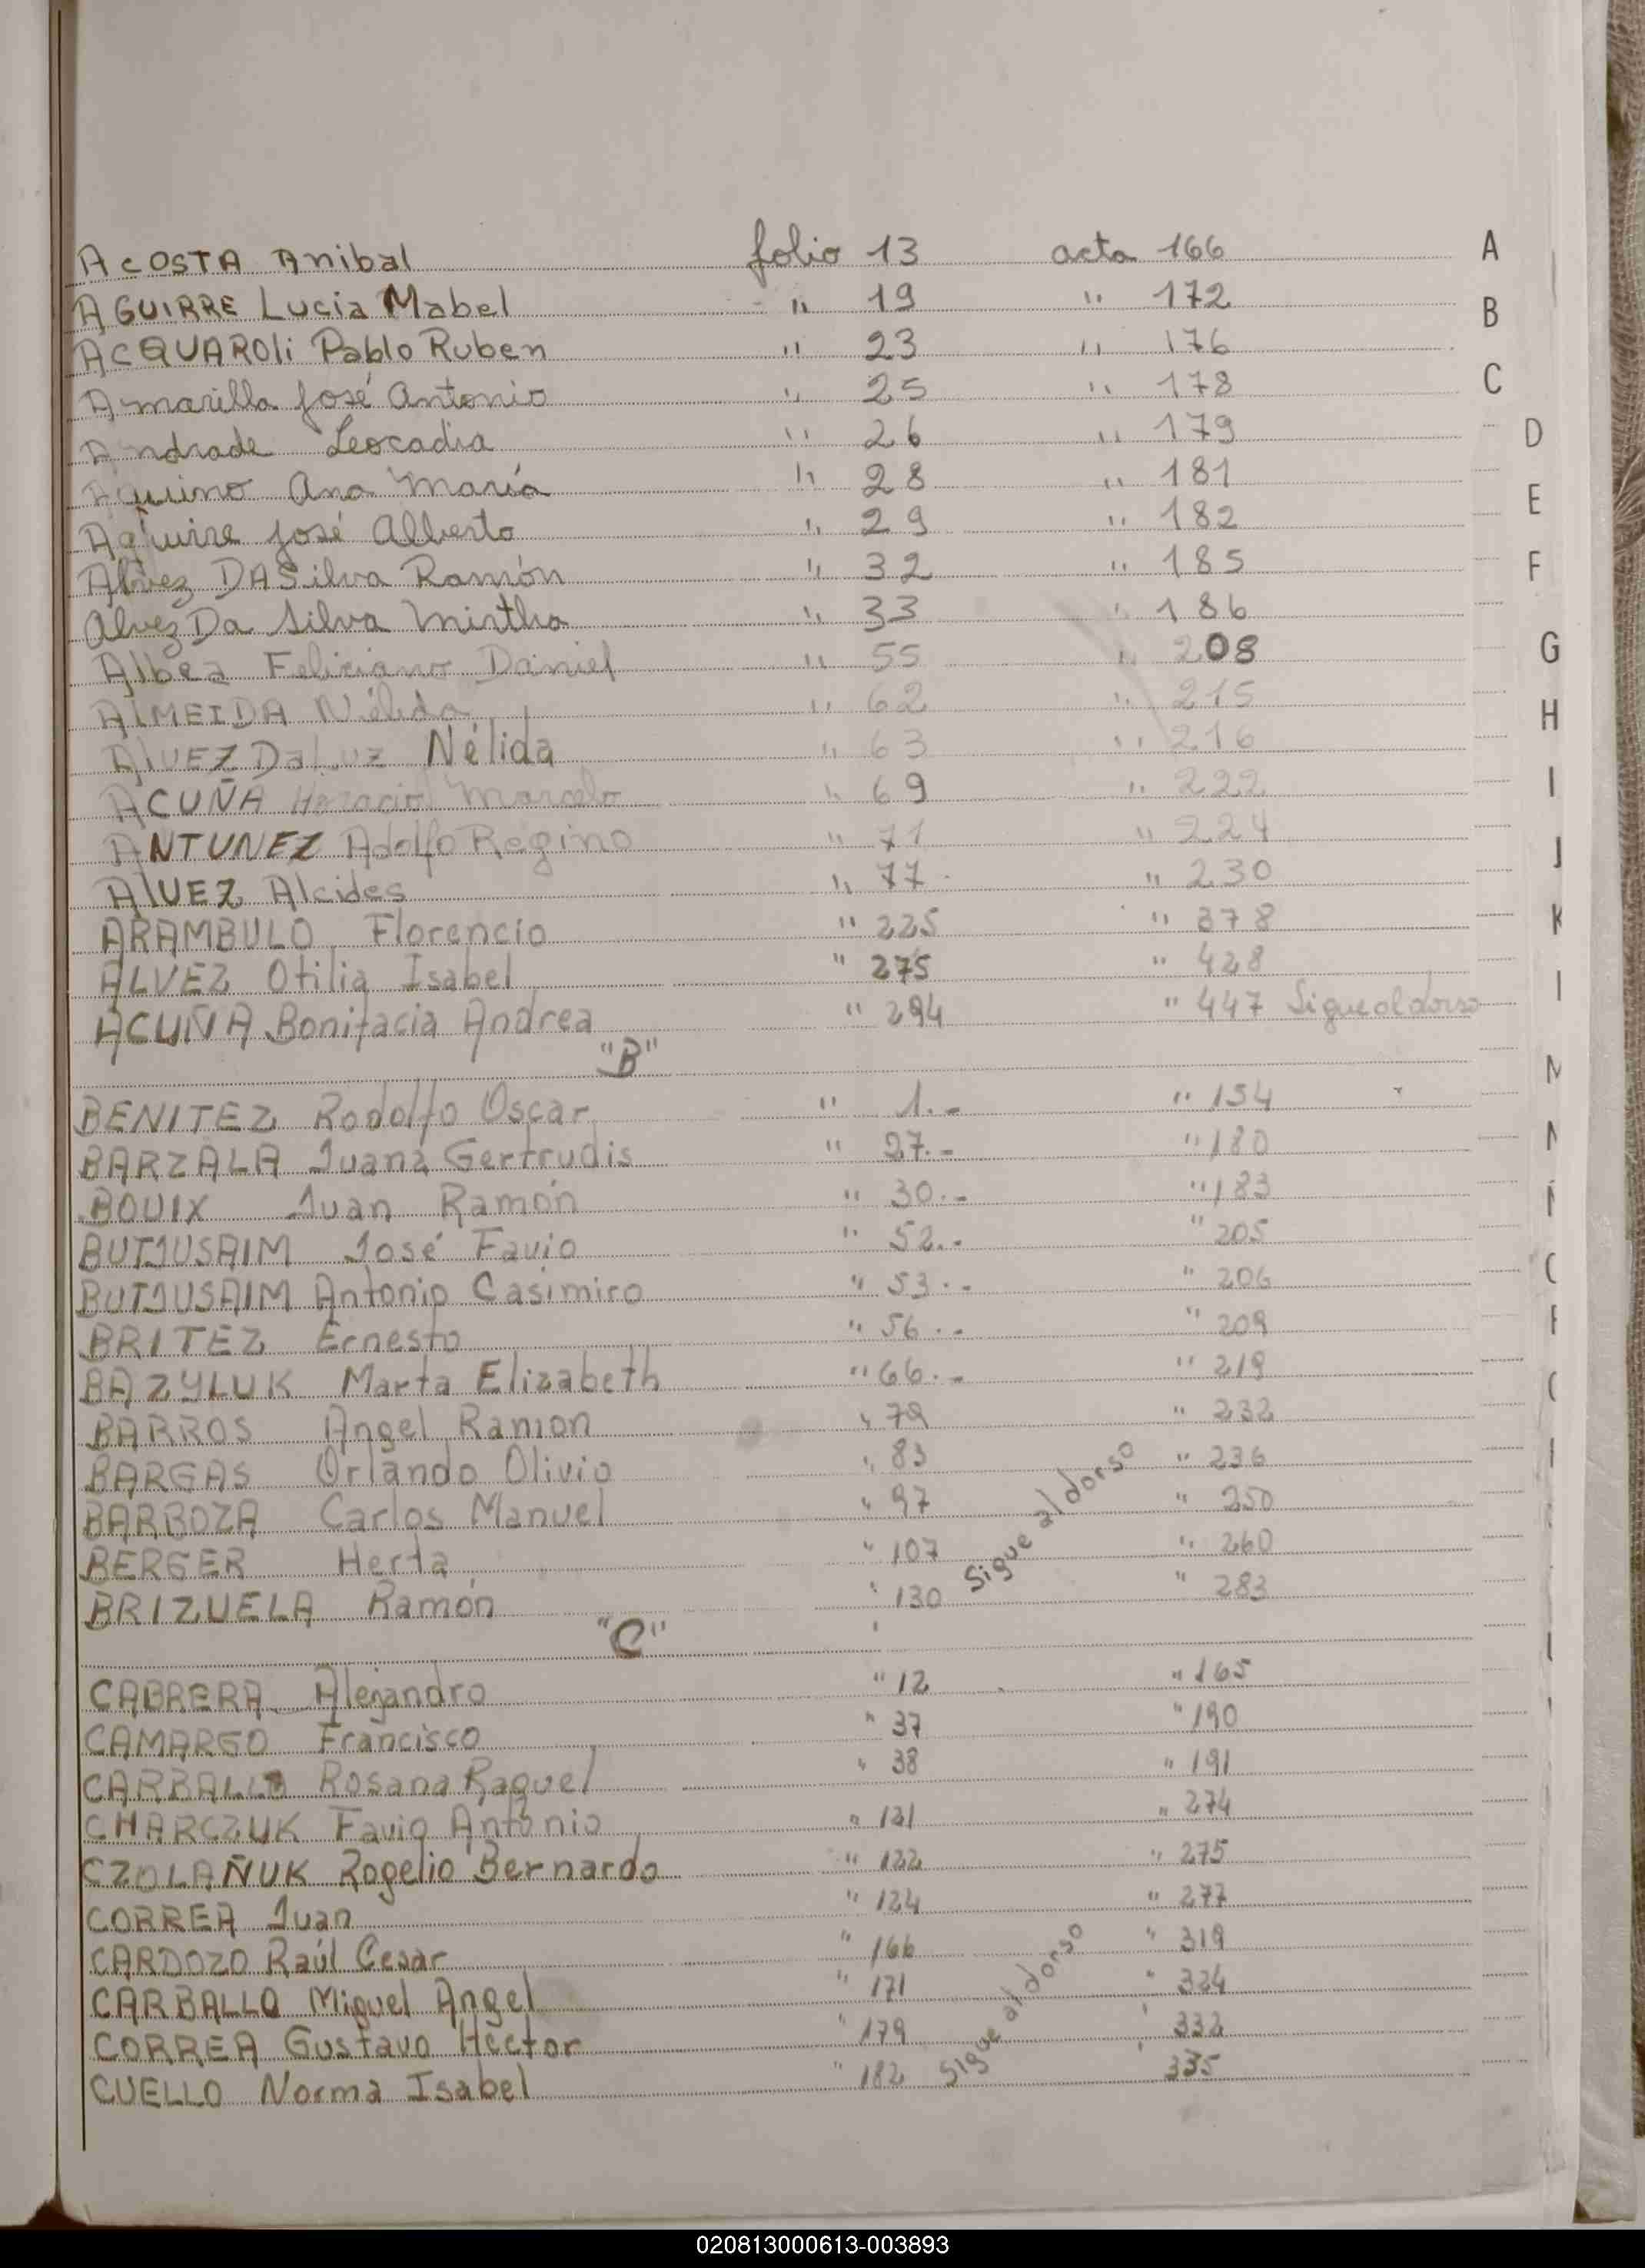 ACOSTA Anibal folio 13 acta 166 A
AGUIRRE Lucia Mabel " 19 " 172 B
ACQUAROLi Pablo Ruben " 23 " 176
Amarilla José Antonio " 25 " 178 C
Andrade Leocadia " 26 " 179 D
Aquino Ana María " 28 " 181
Aguirre José Alberto " 29 " 182 E
Alvez DA Silva Ramón " 32 " 185 F
Alvez Da Silva Mirtha " 33 " 186
Albea Feliciano Daniel " 55 " 208 G
AlMEIDA Nélida " 62 " 215 H
AlVEZ Da Luz Nélida " 63 " 216
ACUÑA Horacio Marcelo " 69 " 222 I
ANTUNEZ Adolfo Regino " 71 " 224 J
AlVEZ Alcides " 77 " 230
ARAMBULO Florencio " 225 " 378 K
ALVEZ Otilia Isabel " 275 " 428
ACUÑA Bonifacia Andrea " 294 " 447 Sigue al dorso
"B"
BENITEZ Rodolfo Oscar " 1.- " 154
BARZALA Juana Gertrudis " 27.- " 180
BOUIX Juan Ramón " 30.- " 183
BUTJUSAIM José Favio " 52.- " 205
BUTJUSAIM Antonio Casimiro " 53.- " 206
BRITEZ Ernesto " 56.- " 209
BAZYLUK Marta Elizabeth " 66.- " 219
BARROS Angel Ramon " 79 " 232
BARGAS Orlando Olivio " 83 " 236
BARBOZA Carlos Manuel " 97 " 250
BERGER Herta " 107 Sigue al dorso " 260
BRIZUELA Ramón " 130 " 283
"C"
CABRERA Alejandro " 12 " 165
CAMARGO Francisco " 37 " 190
CARBALLO Rosana Raquel " 38 " 191
CHARCZUK Favio Antonio " 121 " 274
CZOLAÑUK Rogelio Bernardo " 122 " 275
CORREA Juan " 124 " 277
CARDOZO Raúl Cesar " 166 " 319
CARBALLO Miguel Angel " 171 " 324
CORREA Gustavo Hector " 179 " 332
CUELLO Norma Isabel " 182 Sigue al dorso 335
020813000613-003893